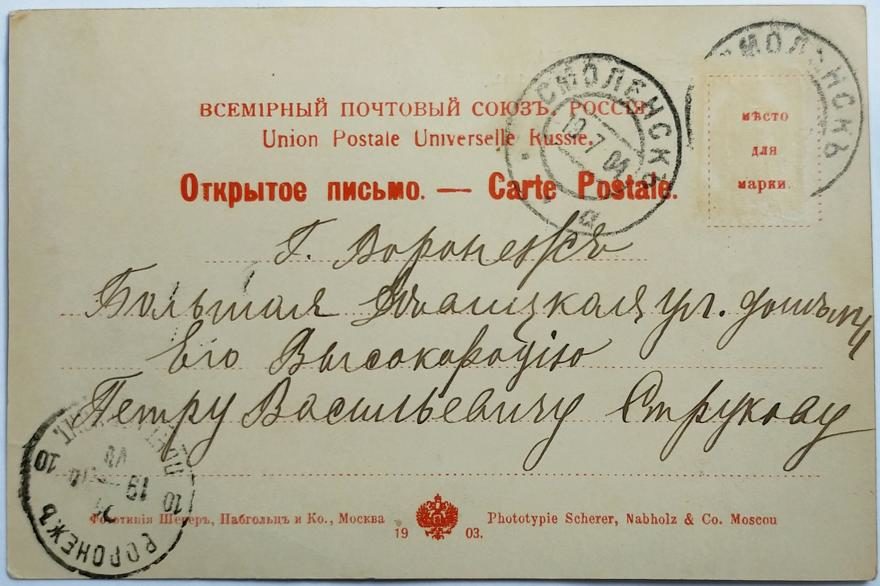 ВСЕМІРНЫЙ ПОЧТОВЫЙ СОЮЗЪ. РОССІЯ.
Union Postale Universelle Russie.
Открытое письмо. — Carte Postale.
мѣсто
для
марки.
СМОЛЕНСКЪ
СМОЛЕНСКЪ
7 04
а
Г. Воронежъ
Большая Дворянская ул. домъ №
Его Высокородію
Петру Васильевичу Струкову
ВОРОНЕЖЪ
10
10
19
VII
Фототипія Шереръ, Набгольцъ и Ко., Москва
Phototypie Scherer, Nabholz & Co. Moscou
19 03.